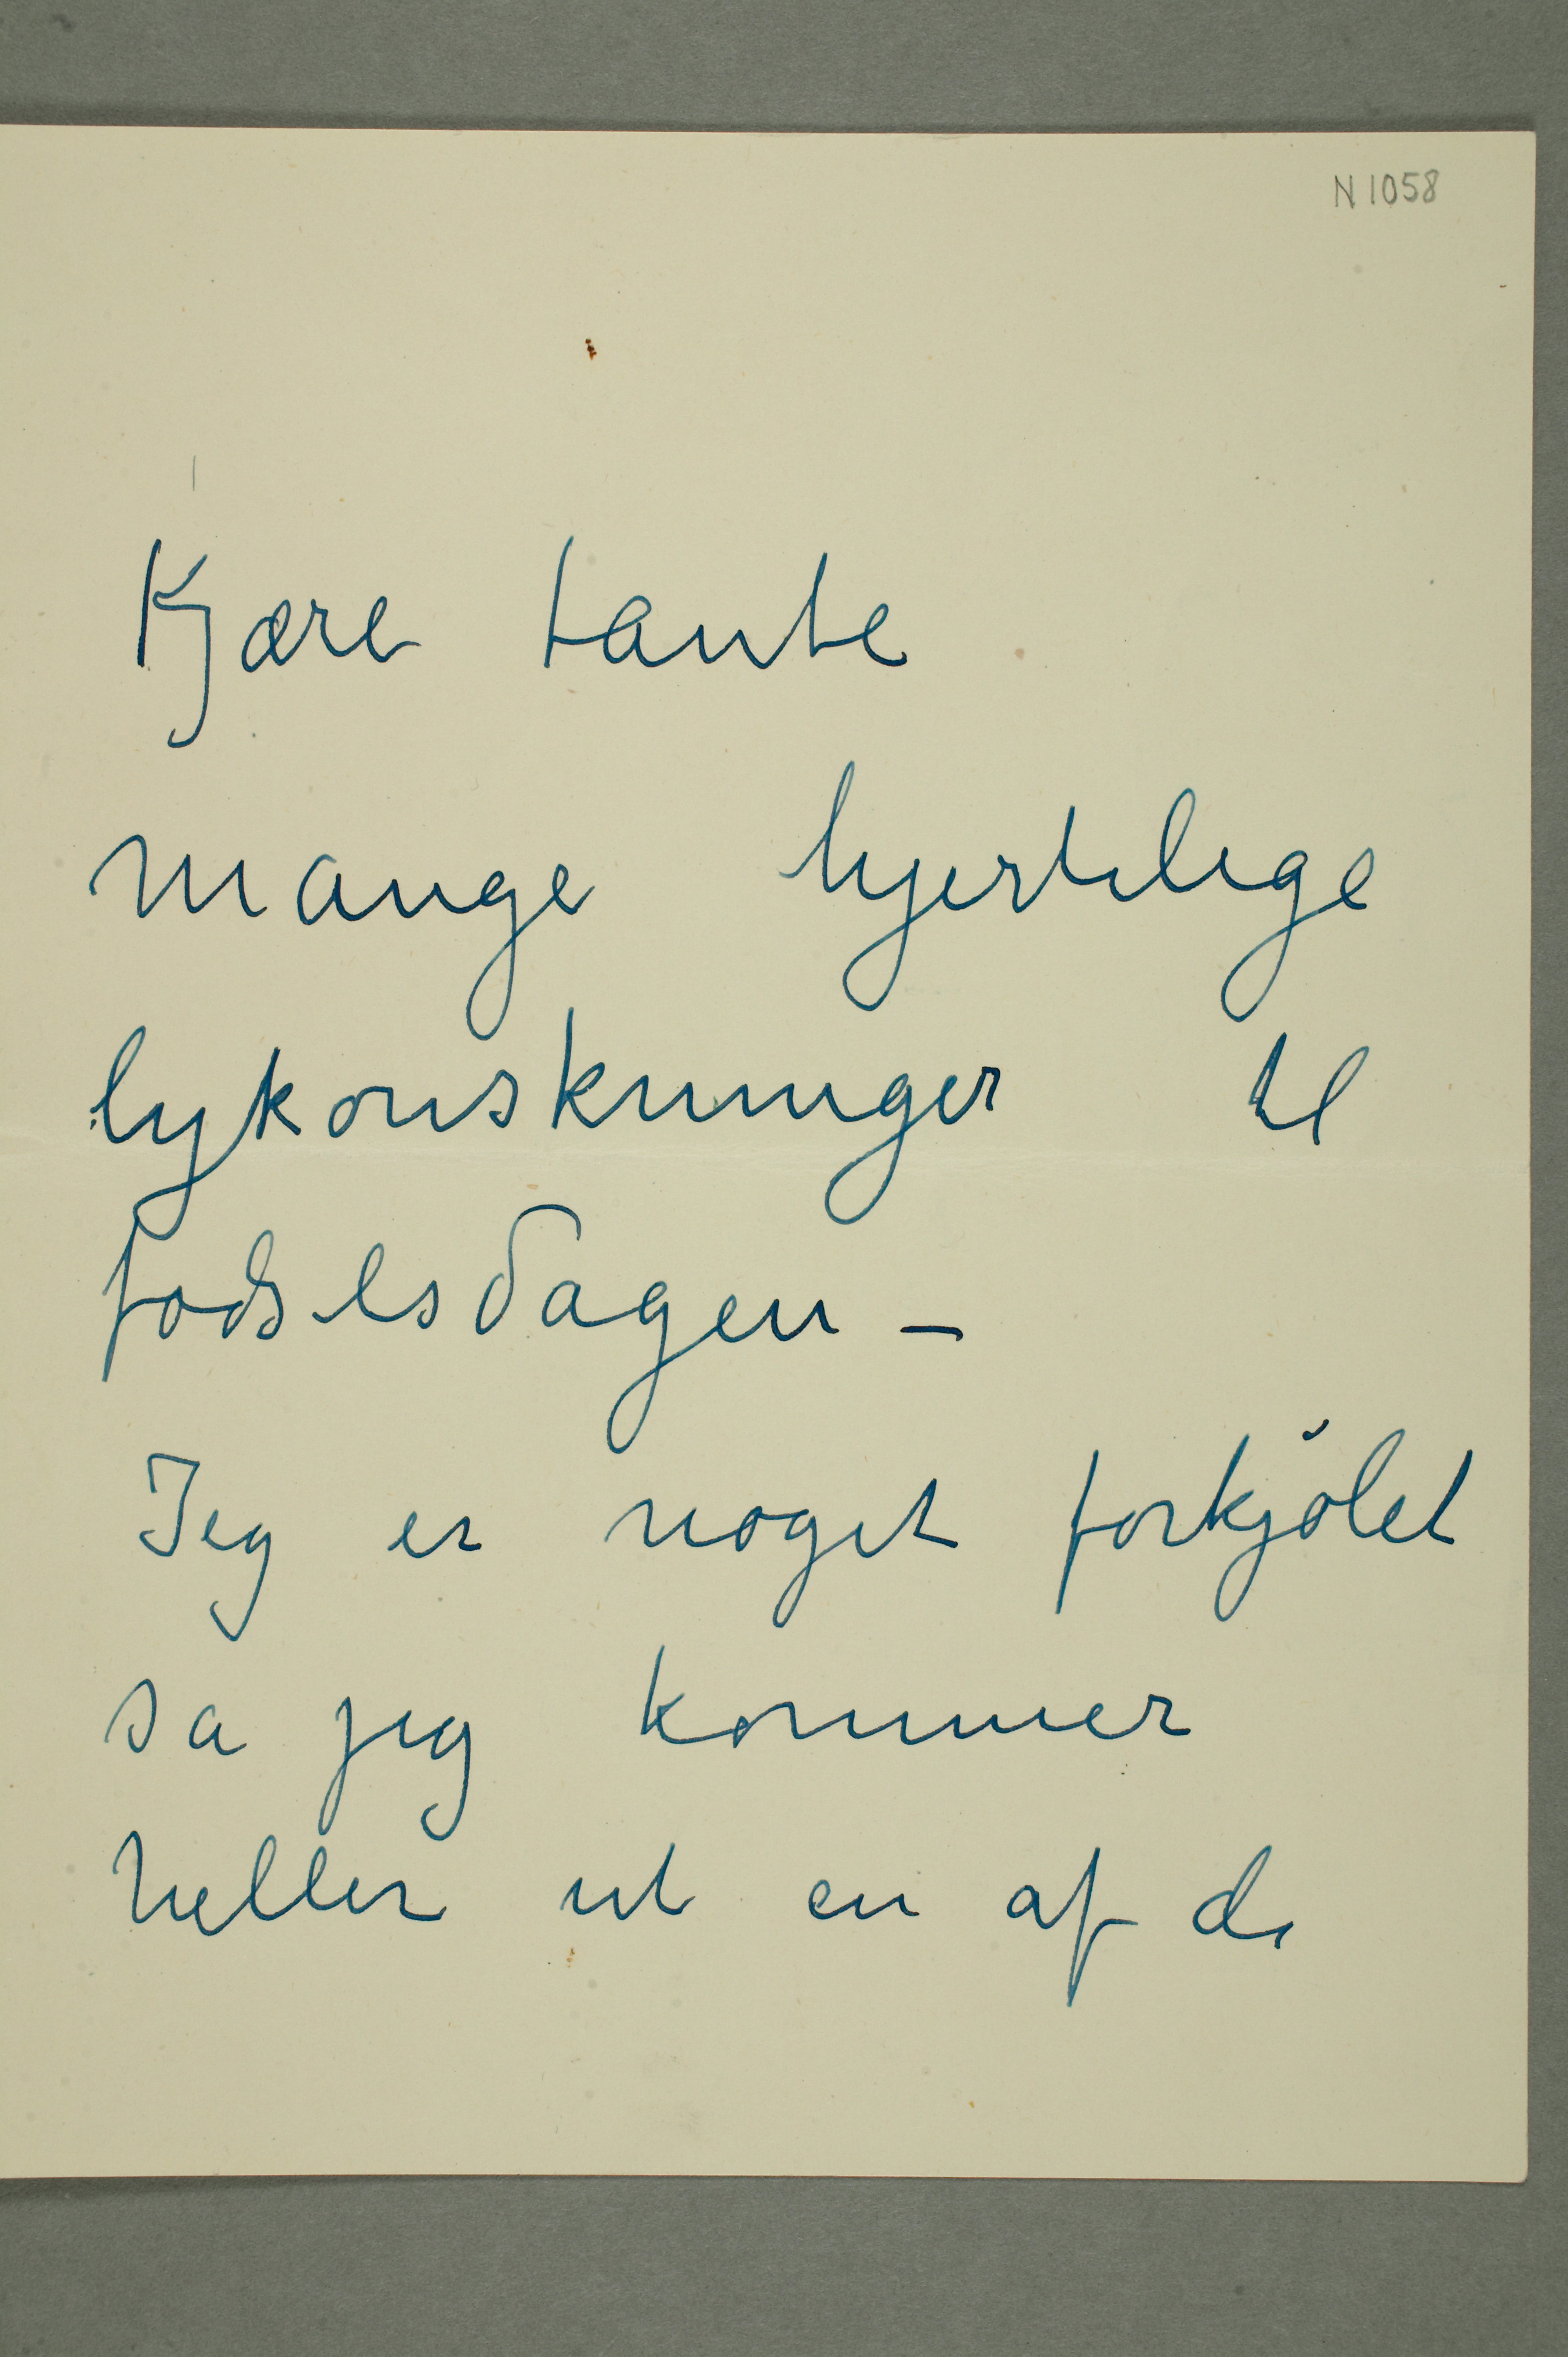 N 1058
Kjære tante
mange hjertelige
lykonskninger til
fodselsdagen –
Jeg er noget forkjölet
sa jeg kommer
heller ut en af de